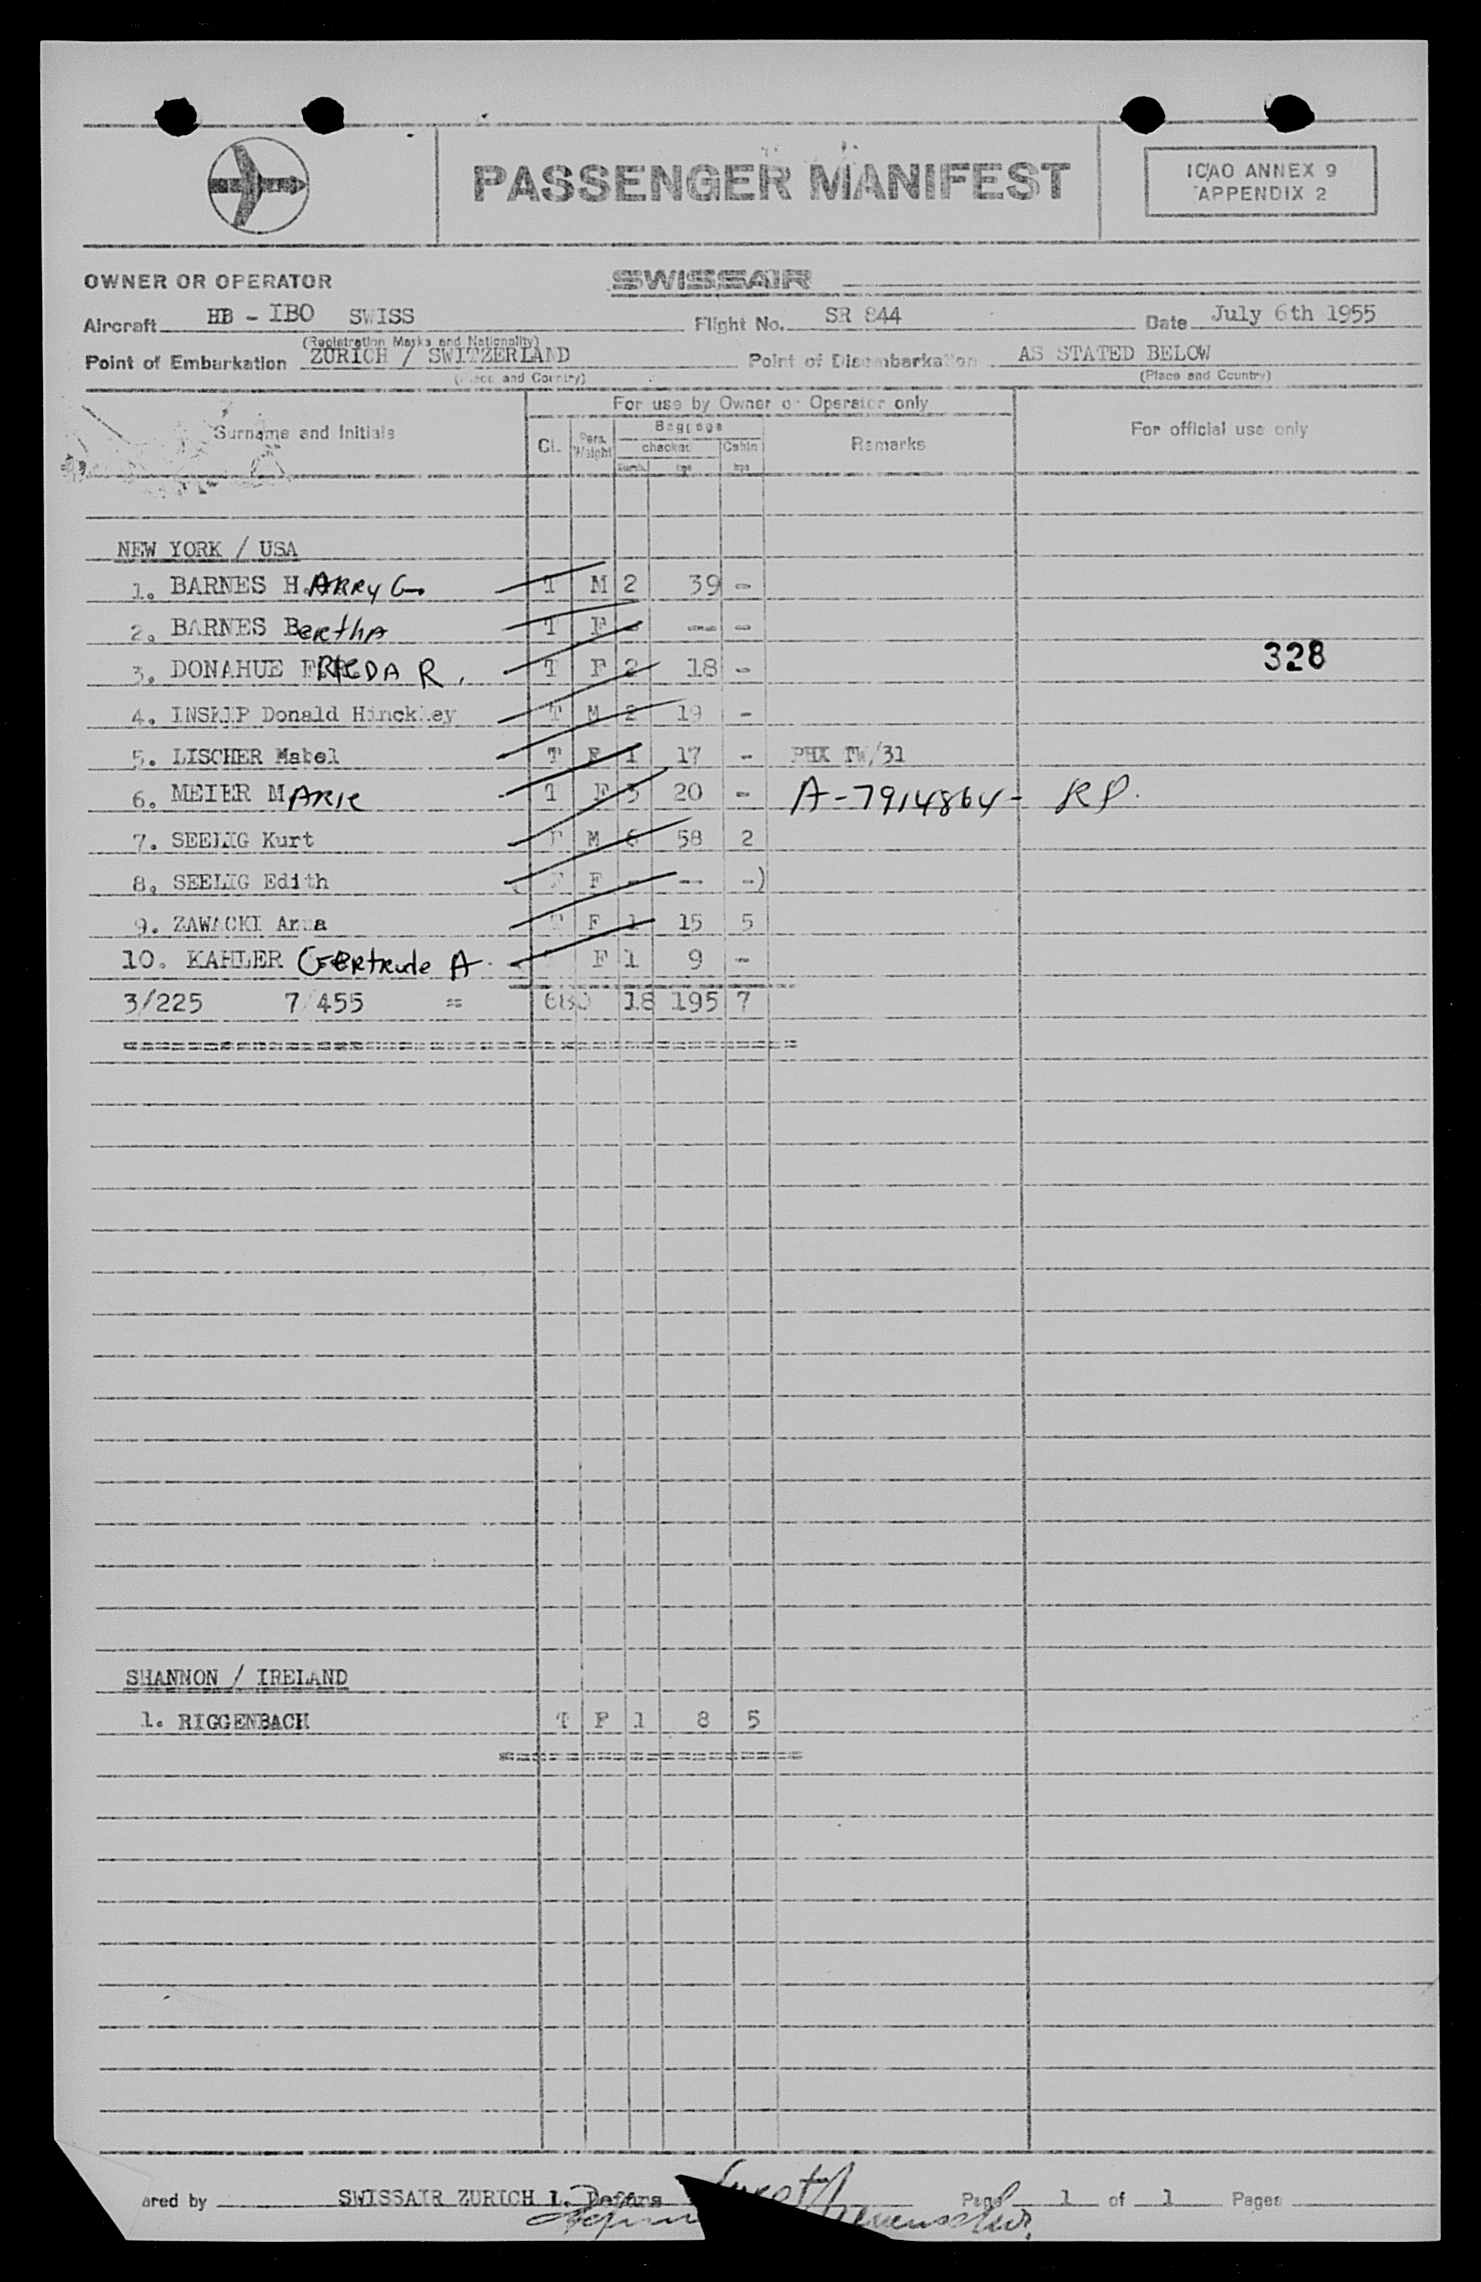 PASSENGER MANIFEST
ICAO ANNEX 9
APPENDIX 2
OWNER OR OPERATOR SWISSAIR
Aircraft HB - IBO SWISS Flight No. SR 844 Date July 6th 1955
(Registration Marks and Nationality)
Point of Embarkation ZURICH / SWITZERLAND Point of Disembarkation AS STATED BELOW
(Place and Country) (Place and Country)
For use by Owner or Operator only
Surname and Initials Cl. Pers. Weight Baggage checked Cabin Remarks For official use only
Numb. kgs kgs
NEW YORK / USA
1. BARNES HARRY G. T M 2 39 -
2. BARNES Bertha T F - -- -
3. DONAHUE FRIEDA R. T F 2 18 -
328
4. INSKIP Donald Hinckley T M 2 19 -
5. LISCHER Mabel T F 1 17 - PHX TW/31
6. MEIER MARIE T F 3 20 - A-7914864 - RP.
7. SEELIG Kurt F M 6 58 2
8. SEELIG Edith F F - -- -)
9. ZAWACKI Anna T F 1 15 5
10. KAHLER Gertrude A. F 1 9 -
3/225 7/455 = 680 18 195 7
SHANNON / IRELAND
1. RIGGENBACH T F 1 8 5
ared by SWISSAIR ZURICH Page 1 of 1 Pages